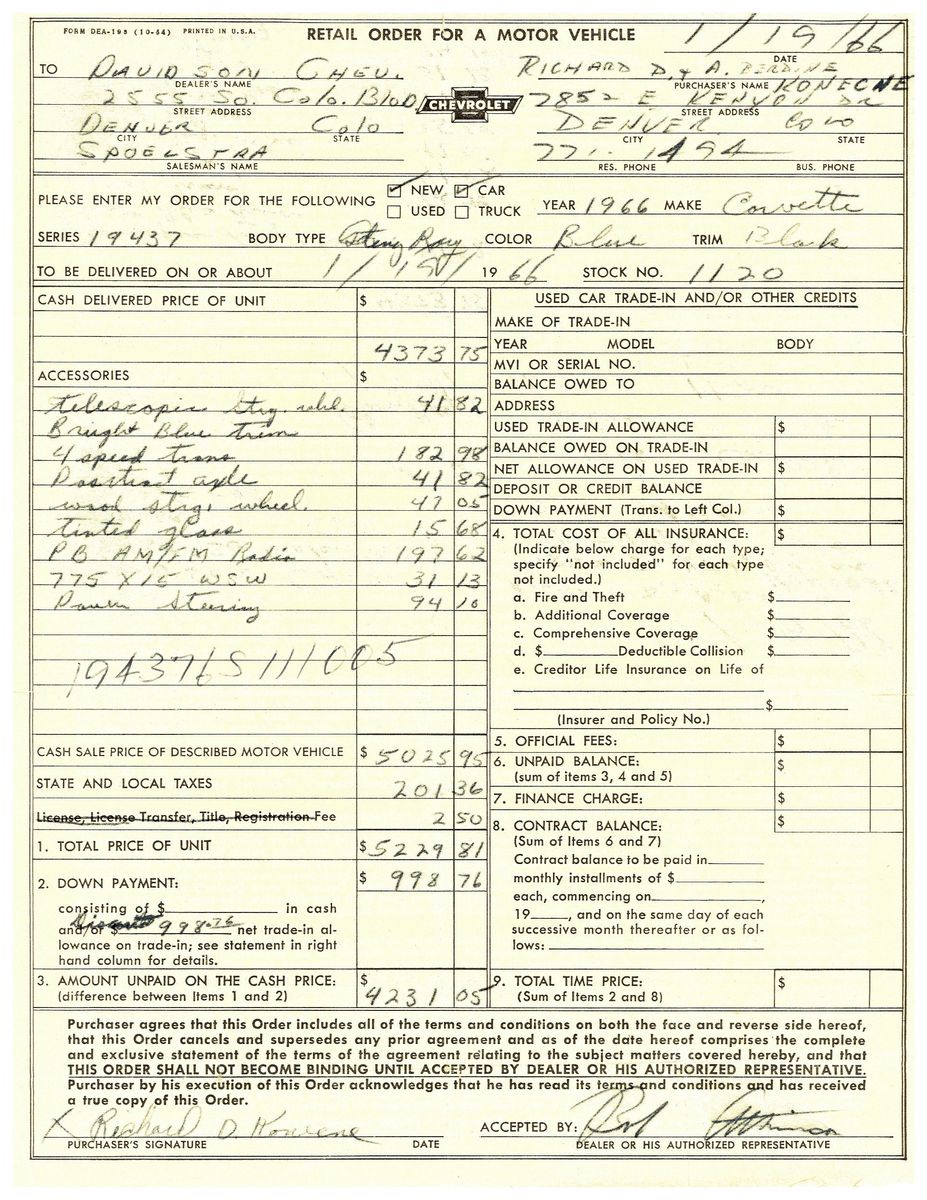 FORM DEA-193 (10-64) PRINTED IN U.S.A. RETAIL ORDER FOR A MOTOR VEHICLE 1/19/66
DATE
TO DAVIDSON CHEV. RICHARD D. & A.
DEALER'S NAME PURCHASER'S NAME KONECNE
2555 So. Colo. Blvd CHEVROLET 2852 E KENYON DR
STREET ADDRESS STREET ADDRESS
DENVER Colo DENVER COLO
CITY STATE CITY STATE
SPOELSTRA 771-1494
SALESMAN'S NAME RES. PHONE BUS. PHONE
PLEASE ENTER MY ORDER FOR THE FOLLOWING ☑ NEW ☑ CAR
☐ USED ☐ TRUCK YEAR 1966 MAKE Corvette
SERIES 19437 BODY TYPE Sting Ray COLOR Blue TRIM Black
TO BE DELIVERED ON OR ABOUT 1/19/ 1966 STOCK NO. 1120
CASH DELIVERED PRICE OF UNIT $
4373 75
ACCESSORIES $
telescopic Strg. whl. 41 82
Bright Blue trim
4 speed trans 182 98
Positract axle 41 82
wood strg. wheel. 47 05
tinted glass 15 68
PB AM/FM Radio 197 62
775 X 15 WSW 31 13
Power Steering 94 10
194376S111005
CASH SALE PRICE OF DESCRIBED MOTOR VEHICLE $ 5025 95
STATE AND LOCAL TAXES 201 36
License, License Transfer, Title, Registration Fee 2 50
1. TOTAL PRICE OF UNIT $ 5229 81
2. DOWN PAYMENT: $ 998 76
consisting of $ in cash
and/or $ Discount 998.76 net trade-in al-
lowance on trade-in; see statement in right
hand column for details.
3. AMOUNT UNPAID ON THE CASH PRICE: $
(difference between Items 1 and 2) 4231 05
USED CAR TRADE-IN AND/OR OTHER CREDITS
MAKE OF TRADE-IN
YEAR MODEL BODY
MVI OR SERIAL NO.
BALANCE OWED TO
ADDRESS
USED TRADE-IN ALLOWANCE $
BALANCE OWED ON TRADE-IN
NET ALLOWANCE ON USED TRADE-IN $
DEPOSIT OR CREDIT BALANCE
DOWN PAYMENT (Trans. to Left Col.) $
4. TOTAL COST OF ALL INSURANCE: $
(Indicate below charge for each type;
specify "not included" for each type
not included.)
a. Fire and Theft $
b. Additional Coverage $
c. Comprehensive Coverage $
d. $ Deductible Collision $
e. Creditor Life Insurance on Life of
$
(Insurer and Policy No.)
5. OFFICIAL FEES: $
6. UNPAID BALANCE: $
(sum of items 3, 4 and 5)
7. FINANCE CHARGE: $
8. CONTRACT BALANCE: $
(Sum of Items 6 and 7)
Contract balance to be paid in
monthly installments of $
each, commencing on ,
19 , and on the same day of each
successive month thereafter or as fol-
lows:
9. TOTAL TIME PRICE: $
(Sum of Items 2 and 8)
Purchaser agrees that this Order includes all of the terms and conditions on both the face and reverse side hereof,
that this Order cancels and supersedes any prior agreement and as of the date hereof comprises the complete
and exclusive statement of the terms of the agreement relating to the subject matters covered hereby, and that
THIS ORDER SHALL NOT BECOME BINDING UNTIL ACCEPTED BY DEALER OR HIS AUTHORIZED REPRESENTATIVE.
Purchaser by his execution of this Order acknowledges that he has read its terms and conditions and has received
a true copy of this Order.
X Richard D. Konecne ACCEPTED BY: Bob Atkinson
PURCHASER'S SIGNATURE DATE DEALER OR HIS AUTHORIZED REPRESENTATIVE